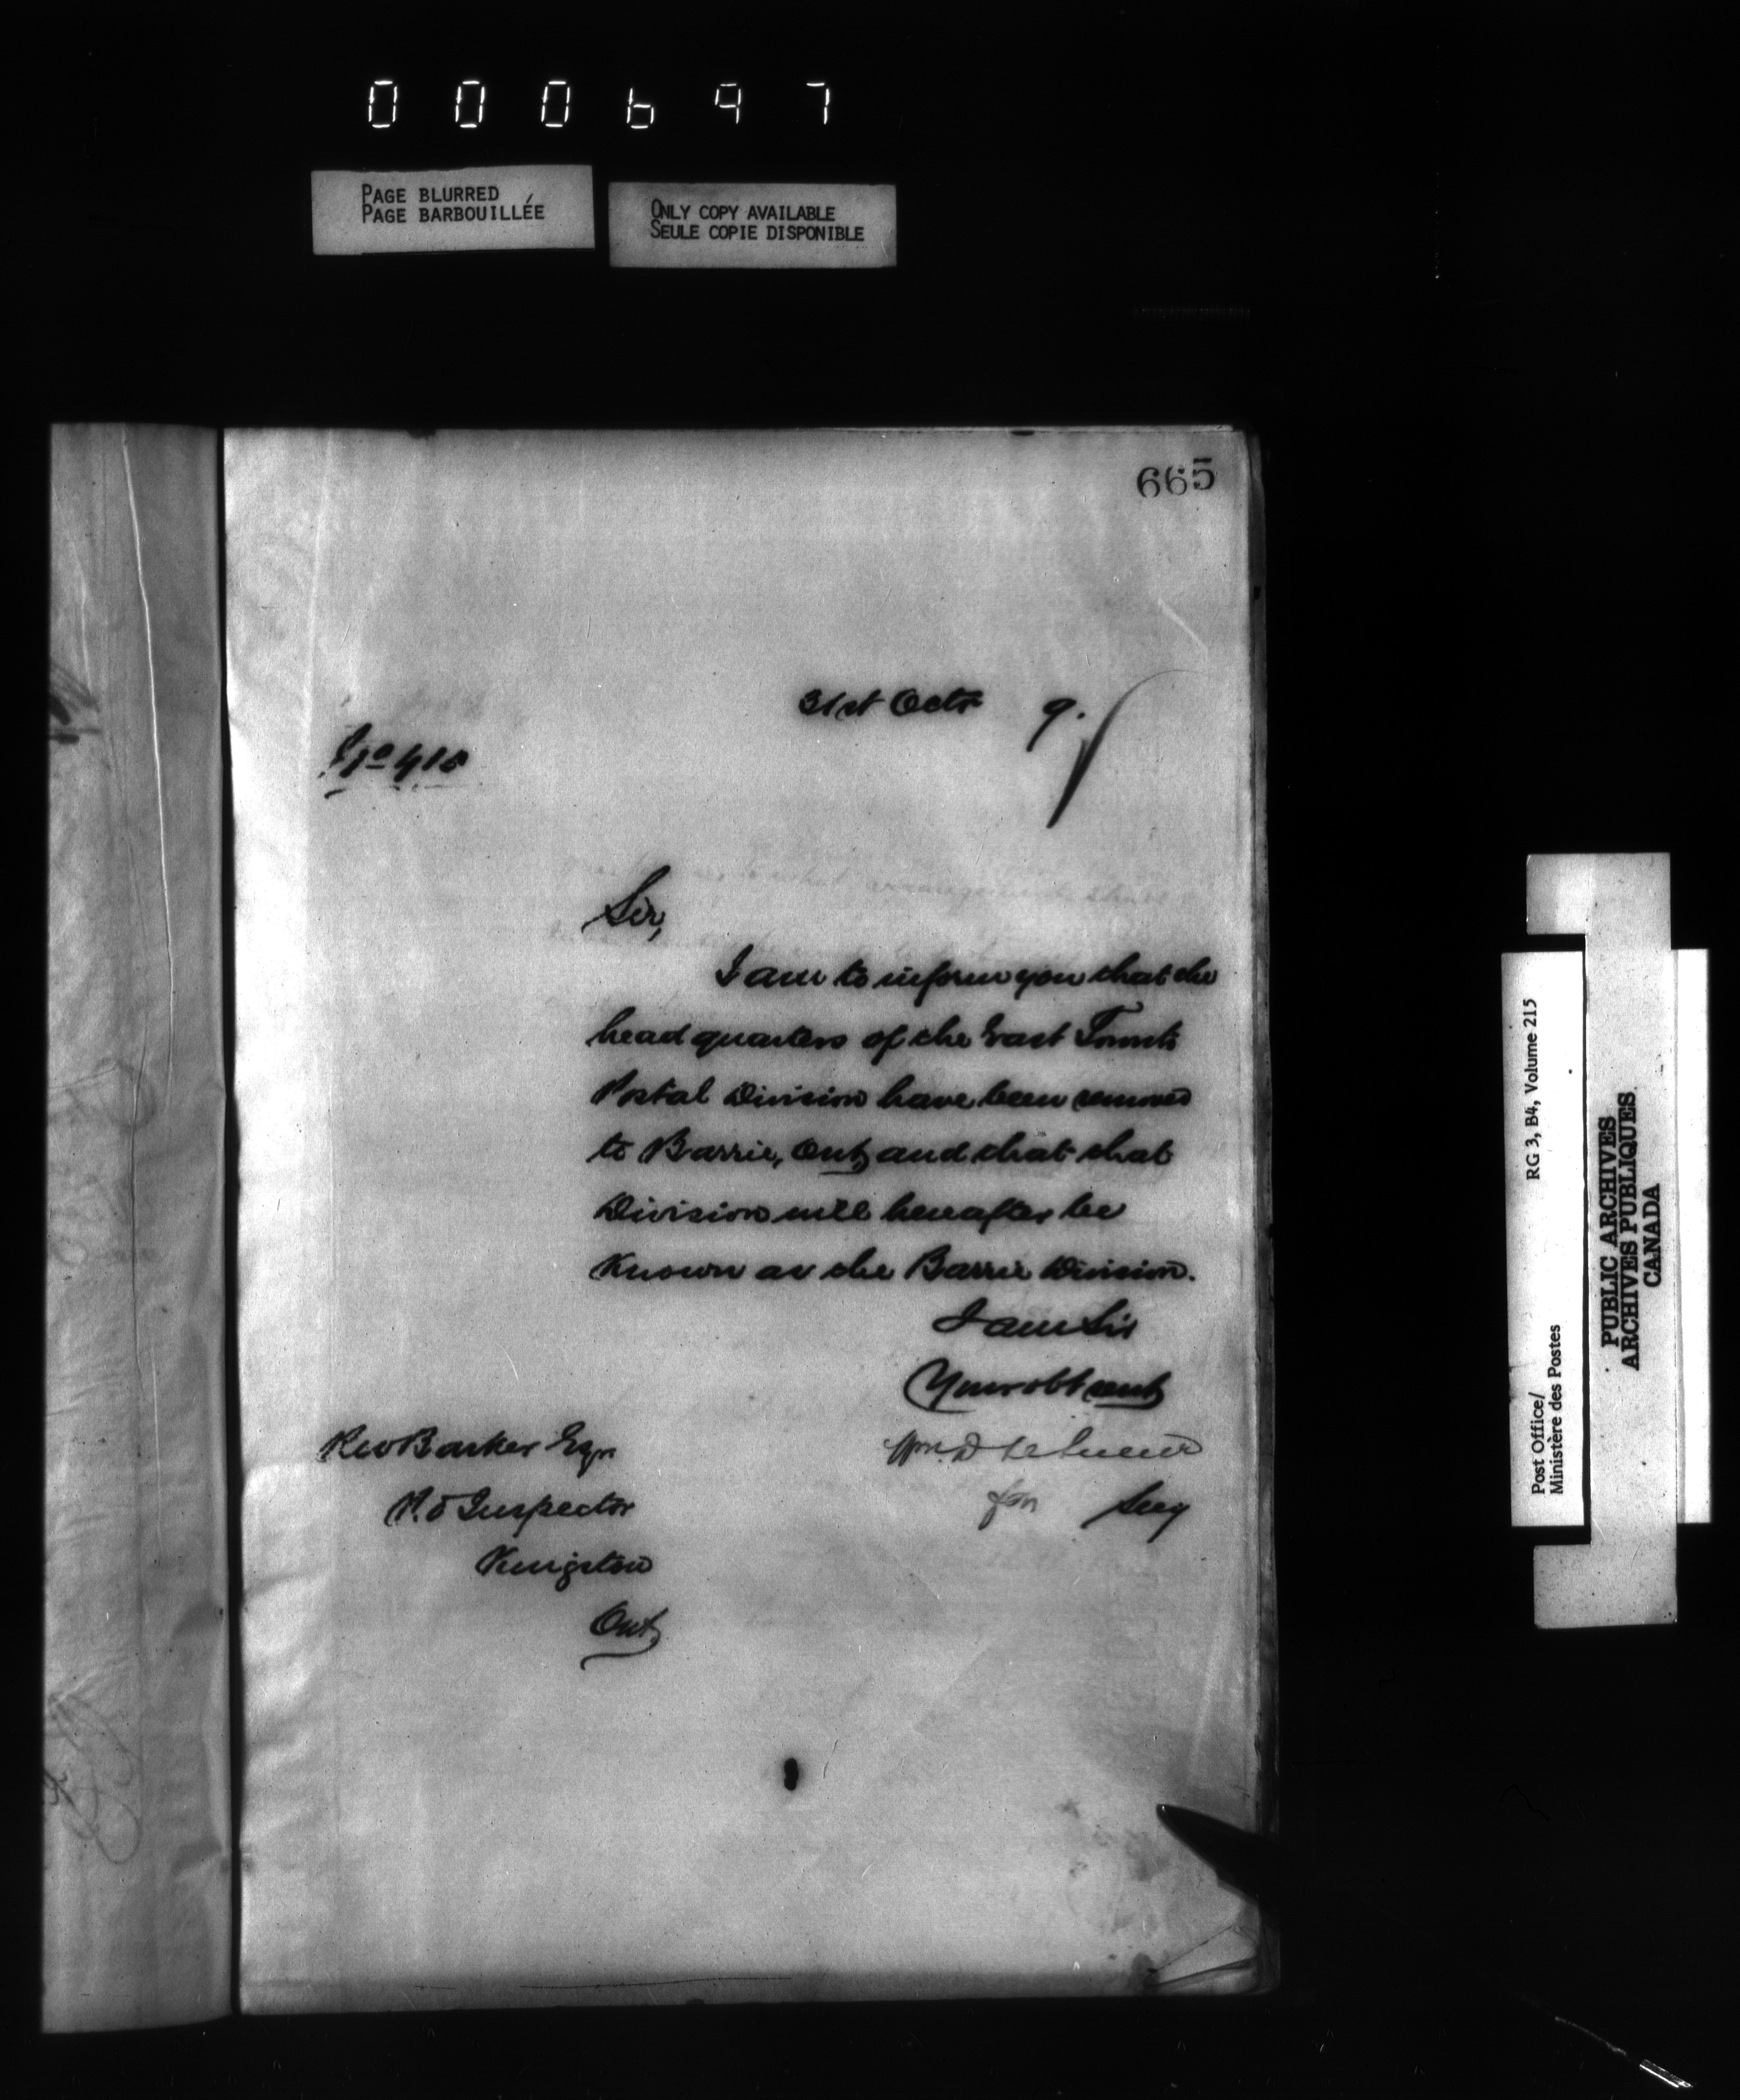 000697
PAGE BLURRED
PAGE BARBOUILLÉE
ONLY COPY AVAILABLE
SEULE COPIE DISPONIBLE
665
31st Octr 9.
No 415
Sir,
I am to inform you that the
head quarters of the East Toronto
Postal Division have been removed
to Barrie, Ont, and that that
Division will hereafter be
Known as the Barrie Division.
I am Sir
Your obt servt
Wm. D
for Secy
Barker Esqr.
P.O Inspector
Kingston
Ont,
Post Office/
Ministère des Postes
RG 3, B4, Volume 215
PUBLIC ARCHIVES
ARCHIVES PUBLIQUES
CANADA